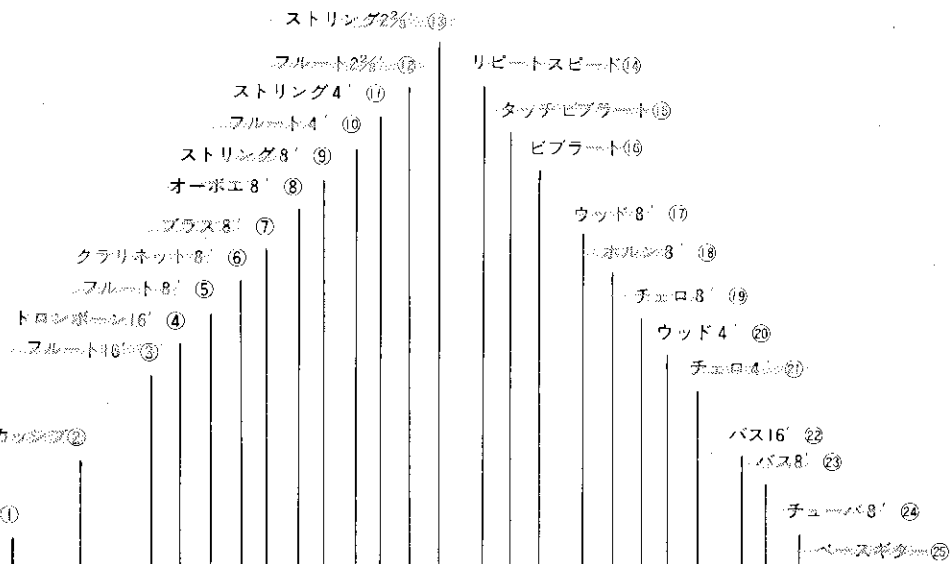 ストリング2⅔′⑬
フルート2⅔′⑫
リピートスピード⑭
ストリング4′⑪
タッチビブラート⑮
フルート4′⑩
ビブラート⑯
ストリング8′⑨
オーボエ8′⑧
ウッド8′⑰
ブラス8′⑦
ホルン8′⑱
クラリネット8′⑥
フルート8′⑤
チェロ8′⑲
トロンボーン16′④
ウッド4′⑳
フルート16′③
チェロ4′㉑
カッシブ②
バス16′㉒
バス8′㉓
①
チューバ8′㉔
ベースギター㉕